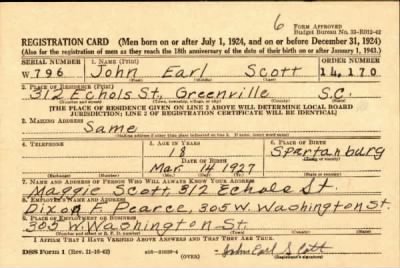 6
FORM APPROVED
Budget Bureau No. 33-R012-42
REGISTRATION CARD (Men born on or after July 1, 1924, and on or before December 31, 1924)
(Also for the registration of men as they reach the 18th anniversary of the date of their birth on or after January 1, 1943.)
SERIAL NUMBER 1. NAME (Print) ORDER NUMBER
W 796 John Earl Scott 14,170
(First) (Middle) (Last)
2. PLACE OF RESIDENCE (Print)
312 Echols St. Greenville S.C.
(Number and street) (Town, township, village, or city) (County) (State)
[THE PLACE OF RESIDENCE GIVEN ON LINE 2 ABOVE WILL DETERMINE LOCAL BOARD
JURISDICTION; LINE 2 OF REGISTRATION CERTIFICATE WILL BE IDENTICAL]
3. MAILING ADDRESS
Same
[Mailing address if other than place indicated on line 2. If same, insert word same]
4. TELEPHONE 5. AGE IN YEARS 6. PLACE OF BIRTH
18 Spartanburg
DATE OF BIRTH
Mar. 14 1927
7. NAME AND ADDRESS OF PERSON WHO WILL ALWAYS KNOW YOUR ADDRESS
Maggie Scott 312 Echols St.
8. EMPLOYER'S NAME AND ADDRESS
Dixon F. Pearce, 305 W. Washington St.
9. PLACE OF EMPLOYMENT OR BUSINESS
305 W. Washington St.
I AFFIRM THAT I HAVE VERIFIED ABOVE ANSWERS AND THAT THEY ARE TRUE.
DSS Form 1 (Rev. 11-16-42) (OVER) John Earl Scott